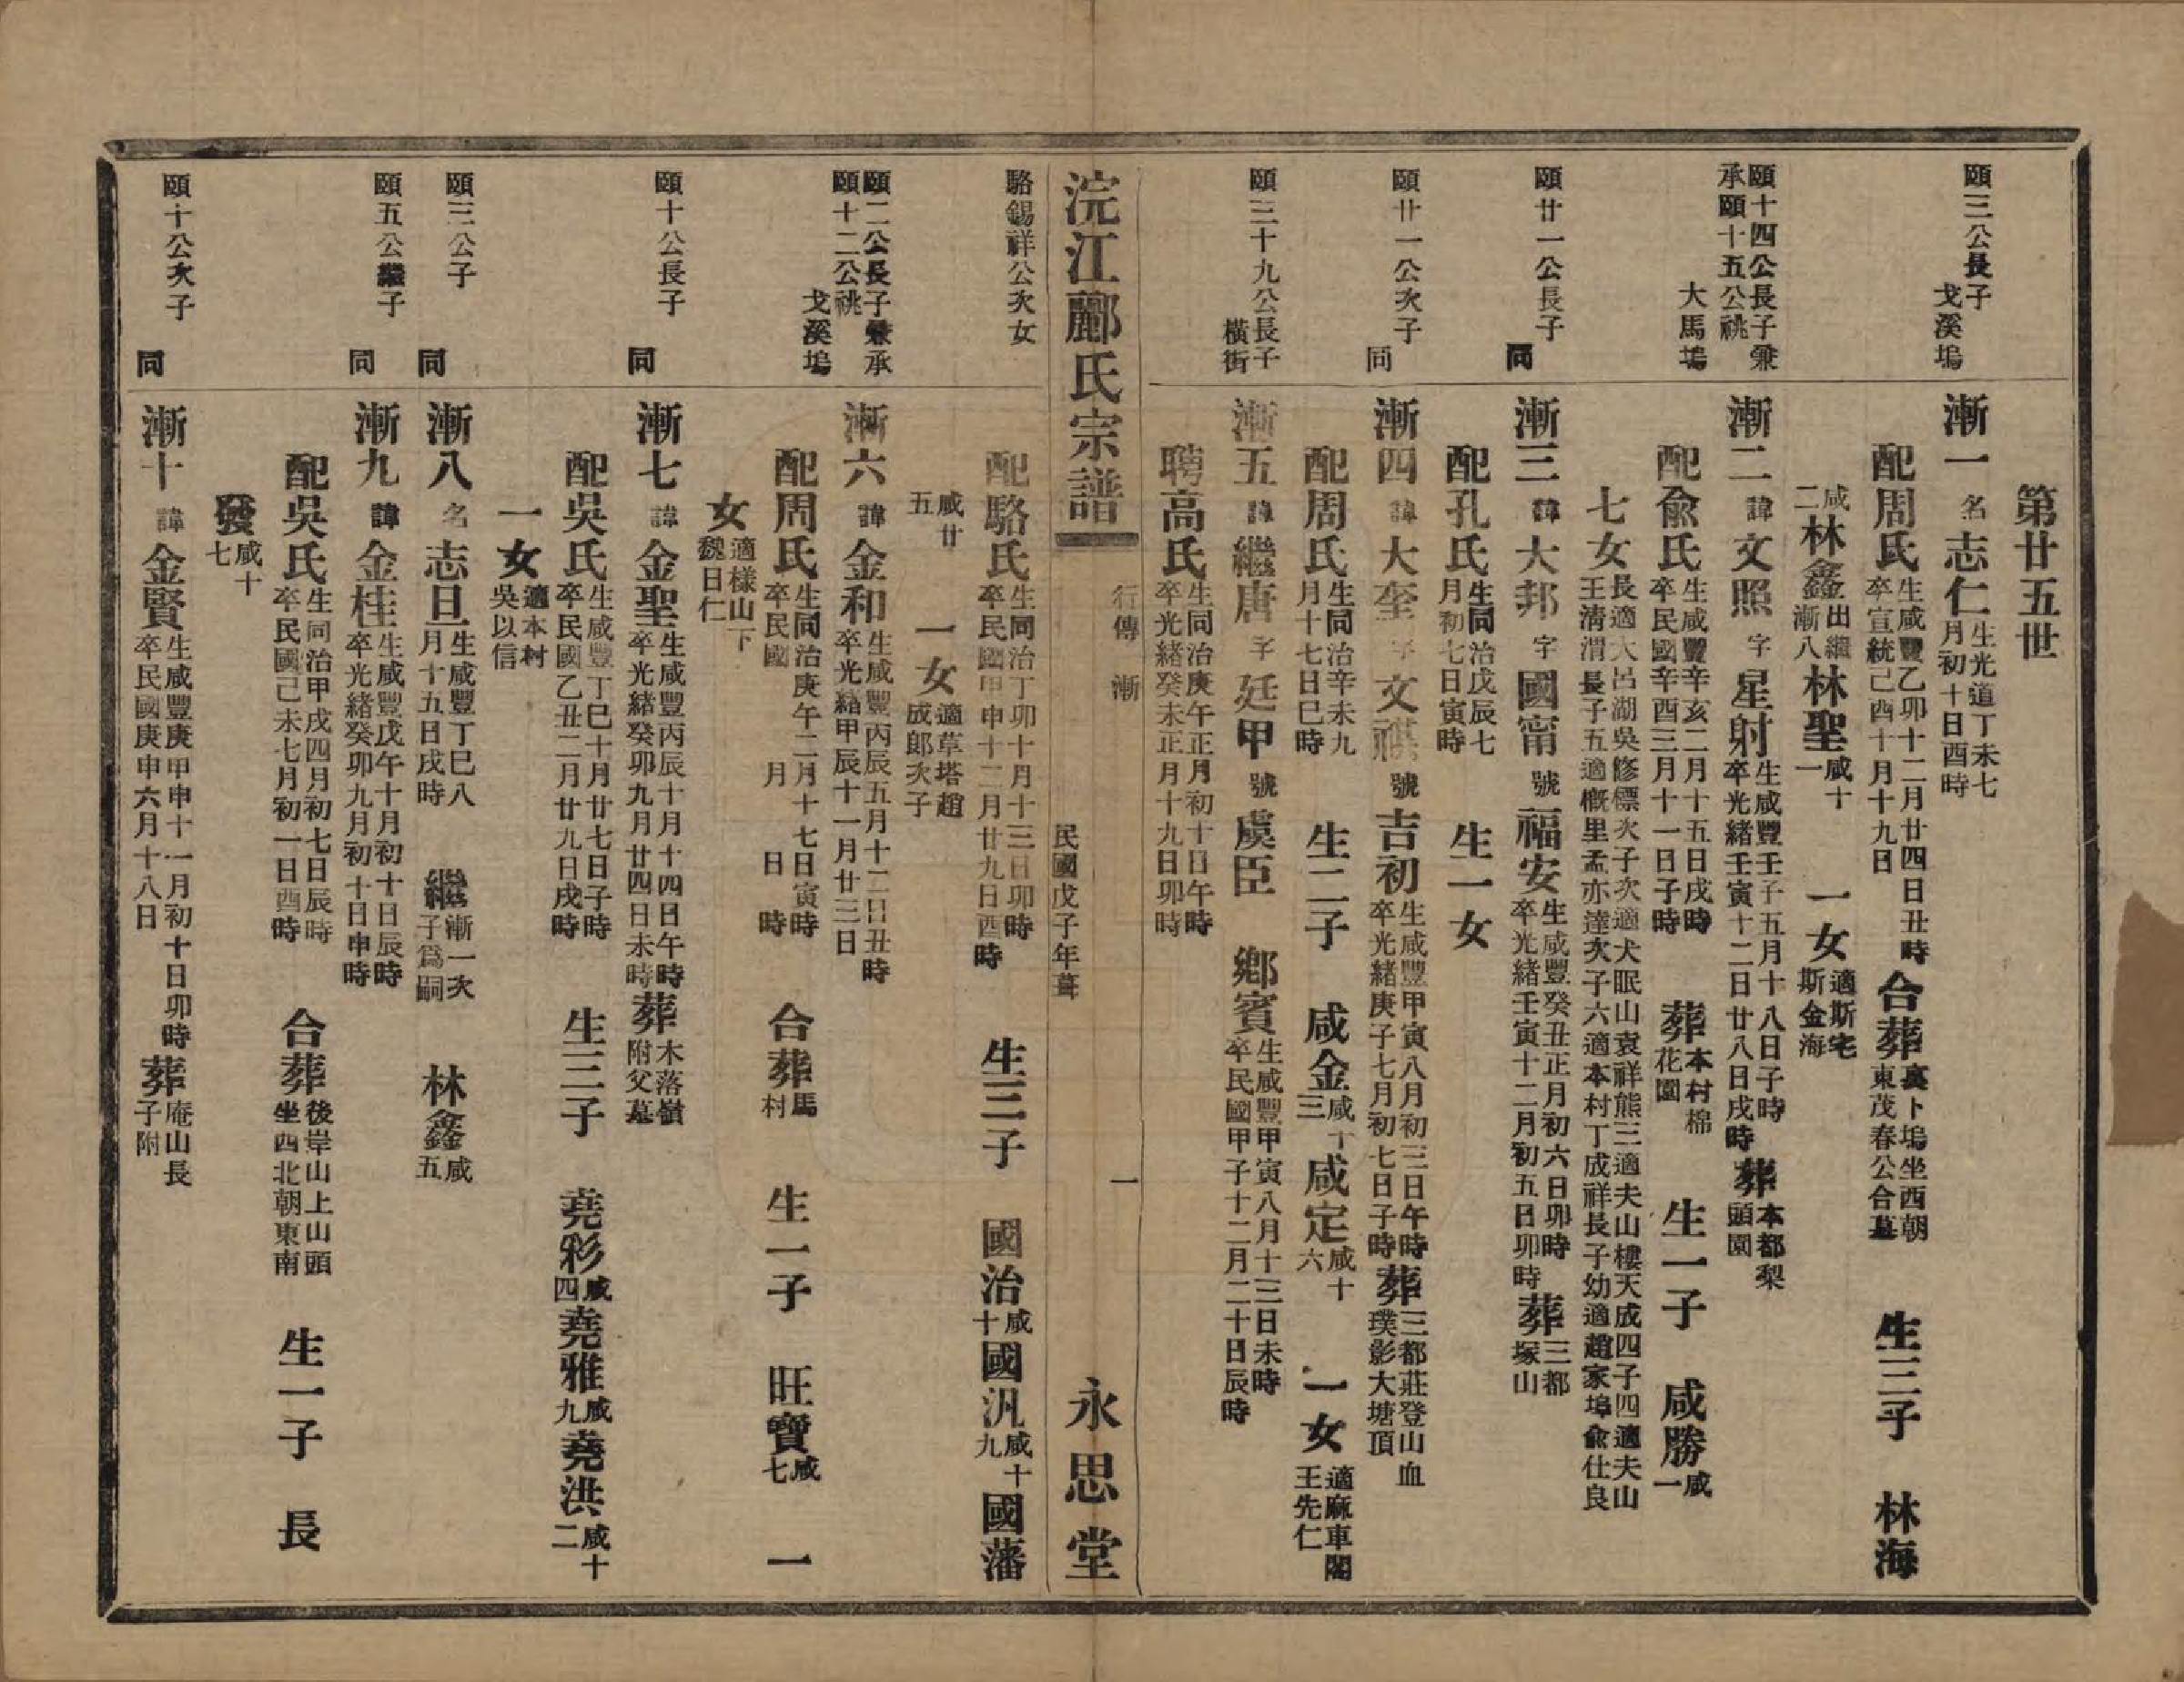 第廿五世
頤三公長子
戈溪塢
漸一 名 志仁 生光道丁未七月初十日酉時
配周氏 生咸豐乙卯十二月廿四日丑時 卒宣統己酉十月十九日 合葬 裏卜塢坐西朝東茂春公合墓 生三子 林海
咸二 林鑫 出繼漸八 林聖 咸十一 一女 適斯宅斯金海
頤十四公長子兼承頤十五公祧
大馬塢
漸二 諱 文照 字 星射 生咸豐壬子五月十八日子時 卒光緒壬寅十二日廿八日戌時 葬 本都梨頭園
配俞氏 生咸豐辛亥二月十五日戌時 卒民國辛酉三月十一日子時 葬 本村棉花園 生一子 咸勝 咸一
七女 長適大呂湖吳修標次子次適犬眠山袁祥熊三適夫山樓天成四子四適夫山王淸渭長子五適槪里孟亦達次子六適本村丁成祥長子幼適趙家埠俞仕良
頤廿一公長子
同
漸三 諱 大邦 字 國甯 號 福安 生咸豐癸丑正月初六日卯時 卒光緒壬寅十二月初五日卯時 葬 三都塚山
配孔氏 生同治戊辰七月初七日寅時 生一女
頤廿一公次子
同
漸四 諱 大奎 字 文祺 號 吉初 生咸豐甲寅八月初三日午時 卒光緒庚子七月初七日子時 葬 三都莊登山血璞影大塘頂
配周氏 生同治辛未九月十七日巳時 生二子 咸金 咸十三 咸定 咸十六 一女 適麻車閣王先仁
頤三十九公長子
橫街
漸五 諱 繼唐 字 廷甲 號 虞臣 鄉賓 生咸豐甲寅八月十三日未時 卒民國甲子十二月二十日辰時
聘高氏 生同治庚午正月初十日午時 卒光緒癸未正月十九日卯時
浣江酈氏宗譜
行傳 漸
民國戊子年葺
一
永思堂
駱錫祥公次女
配駱氏 生同治丁卯十月十三日卯時 卒民國甲申十二月廿九日酉時 生三子 國治 咸十 國汎 咸十九 國藩
咸廿五 一女 適草塔趙成郎次子
頤二公長子兼承頤十二公祧
戈溪塢
漸六 諱 金和 生咸豐丙辰五月十二日丑時 卒光緒甲辰十一月廿三日
配周氏 生同治庚午二月十七日寅時 卒民國 月 日 時 合葬 馬村 生一子 旺寶 咸七 一
女 適樣山下魏日仁
頤十公長子
同
漸七 諱 金聖 生咸豐丙辰十月十四日午時 卒光緒癸卯九月廿四日未時 葬 木落嶺附父墓
配吳氏 生咸豐丁巳十月廿七日子時 卒民國乙丑二月廿九日戌時 生三子 堯彩 咸四 堯雅 咸九 堯洪 咸十二
一女 適本村吳以信
頤三公子
同
漸八 名 志旦 生咸豐丁巳八月十五日戌時 繼 漸一次子爲嗣 林鑫 咸五
頤五公繼子
同
漸九 諱 金桂 生咸豐戊午十月初十日辰時 卒光緒癸卯九月初十日申時
配吳氏 生同治甲戌四月初七日辰時 卒民國己未七月初一日酉時 合葬 後岸山上山頭坐西北朝東南 生一子 長
發 咸十七
頤十公次子
同
漸十 諱 金賢 生咸豐庚甲申十一月初十日卯時 卒民國庚申六月十八日 葬 庵山長子附